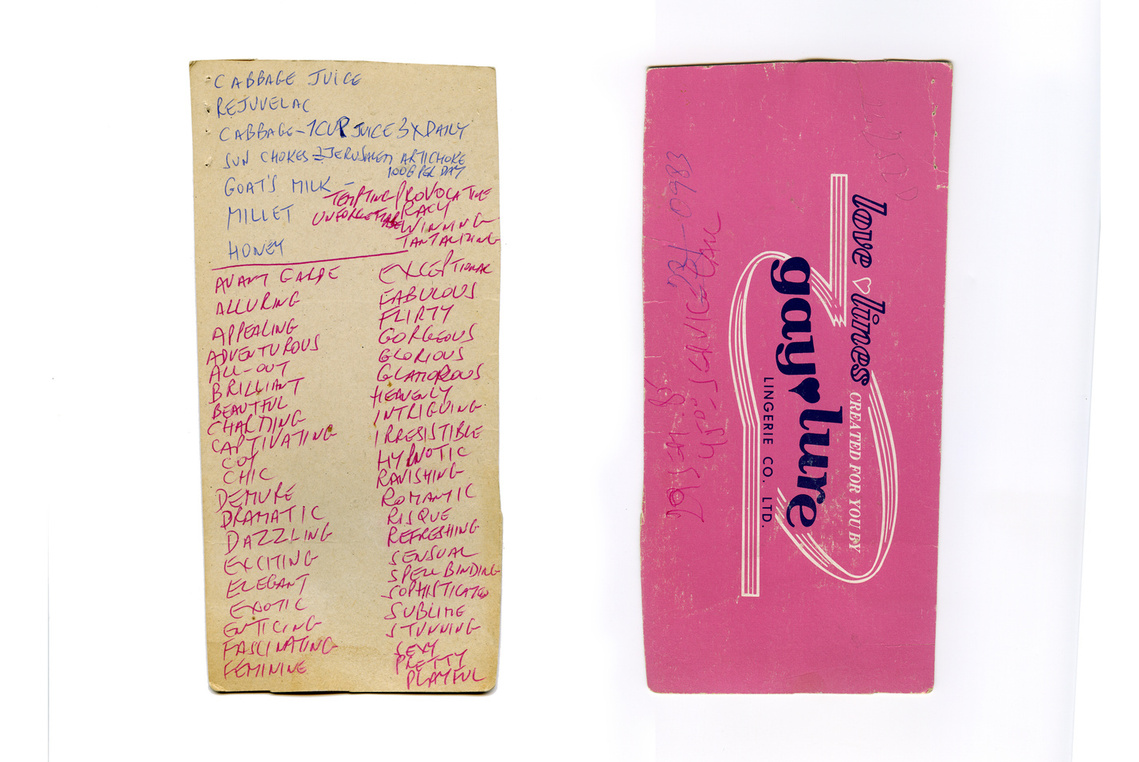 CABBAGE JUICE
REJUVELAC
CABBAGE-1CUP JUICE 3X DAILY
SUN CHOKES JERUSALEM ARTICHOKE
100G PER DAY
GOAT'S MILK -
TEMPTING PROVOCATIVE
MILLET
UNFORGETTABLE RACY
WINNING
HONEY
TANTALIZING
AVANT GARDE
ALLURING
APPEALING
ADVENTUROUS
ALL-OUT
BRILLIANT
BEAUTFUL
CHARMING
CAPTIVATING
COY
CHIC
DEMURE
DRAMATIC
DAZZLING
EXCITING
ELEGANT
EXOTIC
ENTICING
FASCINATING
FEMININE
EXCEPTIONAL
FABULOUS
FLIRTY
GORGEOUS
GLORIOUS
GLAMOROUS
HEAVENLY
INTRIGUING
IRRESISTIBLE
HYPNOTIC
RAVISHING
ROMANTIC
RISQUE
REFRESHING
SENSUAL
SPELLBINDING
SOPHISTICATED
SUBLIME
STUNNING
SEXY
PRETTY
PLAYFUL
love lines CREATED FOR YOU BY
gay lure
LINGERIE CO. LTD.
-0983